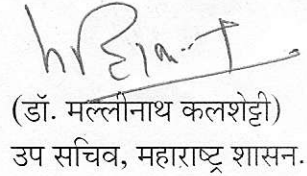 (डॉ. मल्लीनाथ कलशेट्टी)
उप सचिव, महाराष्ट्र शासन.